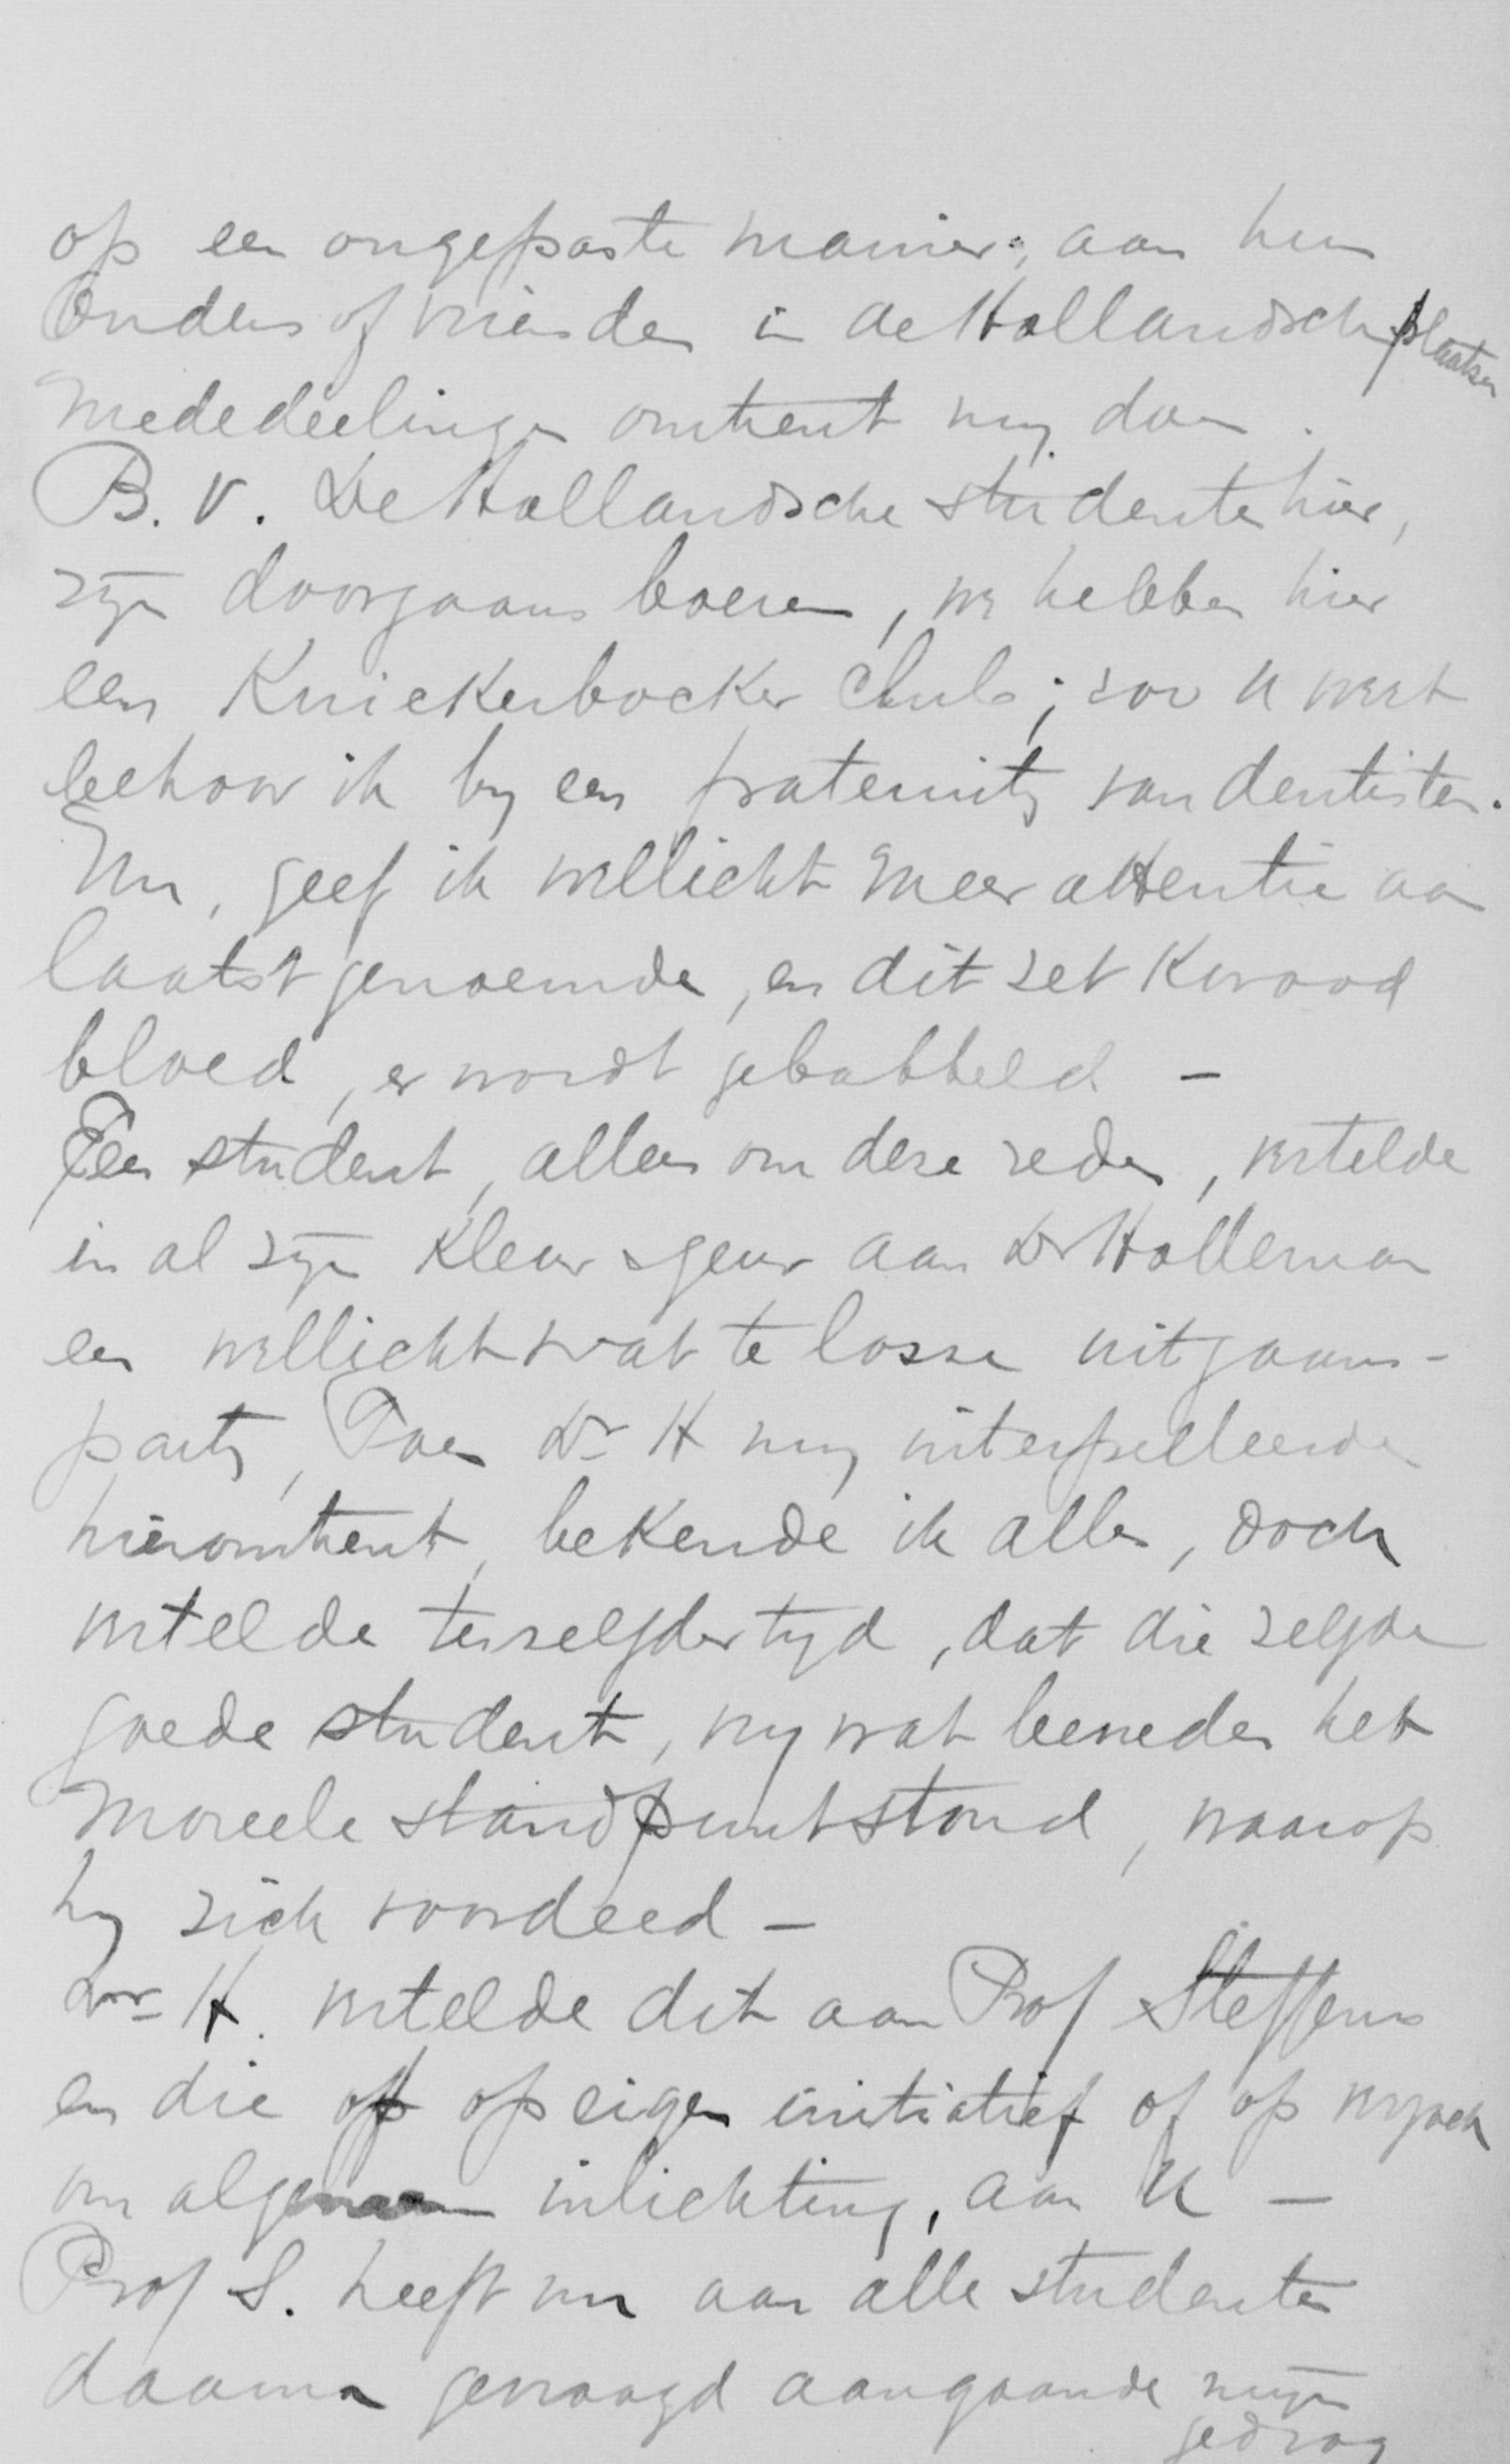 op een ongepaste manier, aan hun
Ouders of vrienden in de Hollandsche plaatsen
mededeelingen omtrent my doen.
B.V. De Hollandsche studenten hier,
zyn doorgaans boeren, we hebben hier
een Knickerbocker Club; zoo U weet
behoor ik by een fraternity van dentisten.
Nu, geef ik wellicht meer attentie aan
laatstgenoemde, en dit zet kwaad
bloed, er wordt gebabbeld –
Een student, alleen om deze reden, vertelde
in al zyn kleur & geur aan Dr Holleman
een wellicht wat te losse uitgaans-
party, Toen Dr H my interpelleerde
hieromtrent, bekende ik alles, doch
vertelde terzelfdertyd, dat die zelfde
goede student, vry wat beneden het
moreele standpunt stond, waarop
hy zich voordeed –
Dr H. vertelde dit aan Prof Steffens
en die of op eigen initiatief of op
om algemeen inlichting, aan U –
Prof S. heeft nu aan alle studenten
daarna gevraagd aangaande myn
gedrag